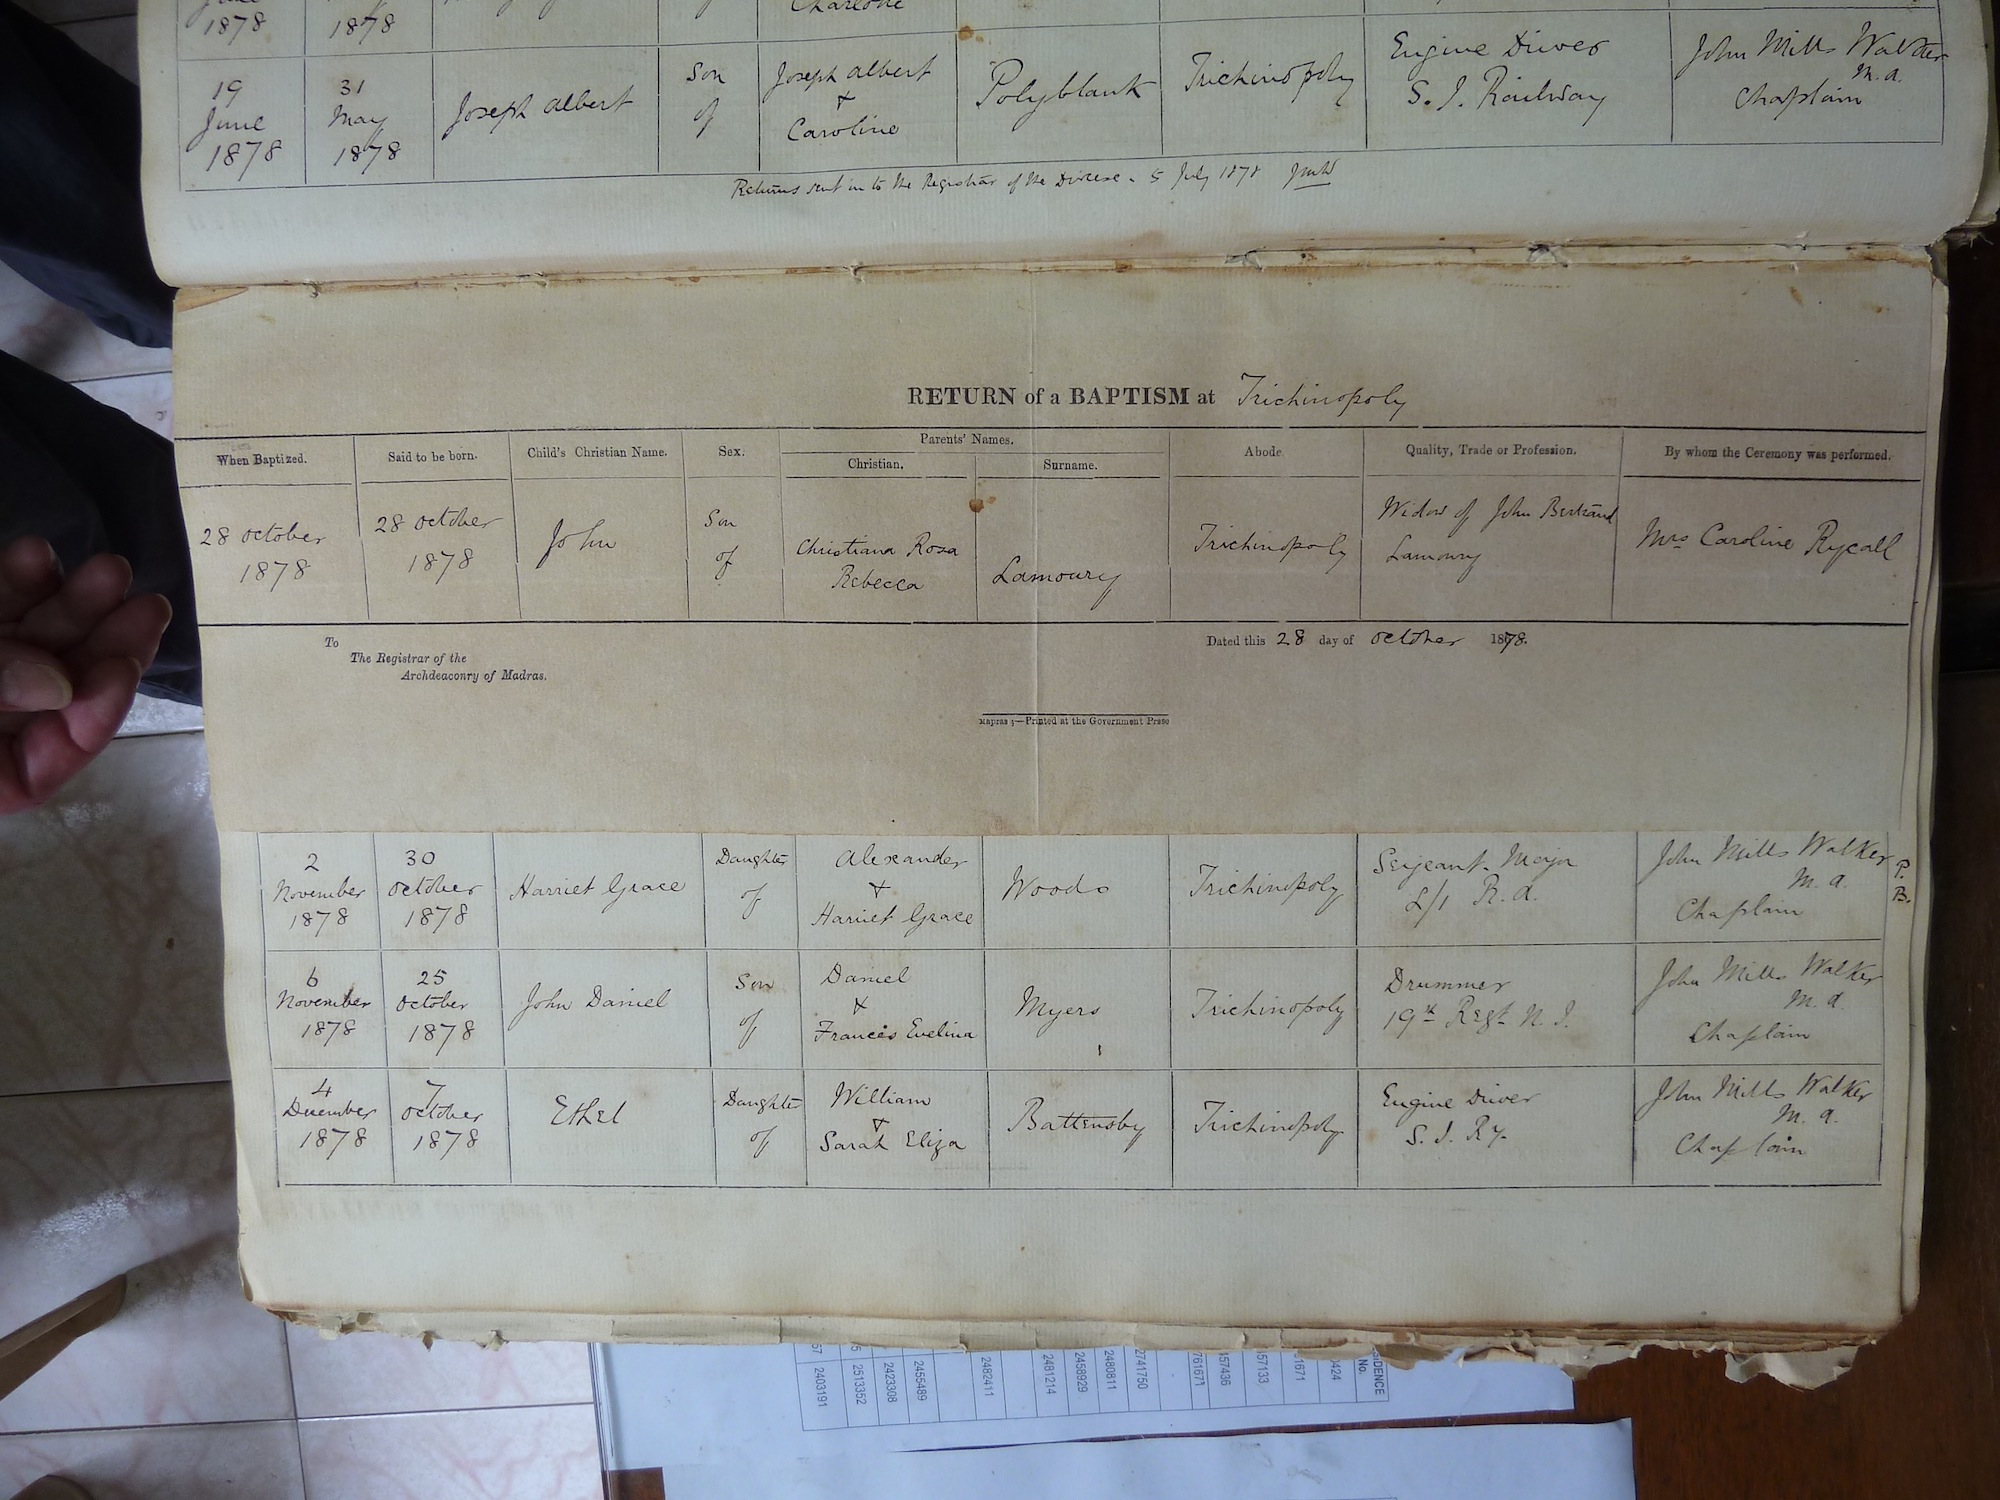 1878 1878 Charlotte
19 June 1878 31 May 1878 Joseph Albert Son of Joseph Albert + Caroline Polyblank Trichinopoly Engine Driver S. I. Railway John Mills Walker M.A. Chaplain
Returns sent in to the Registrar of the Diocese. 5 July 1878 JMW
RETURN of a BAPTISM at Trichinopoly
When Baptized. Said to be born. Child's Christian Name. Sex. Parents' Names. Christian. Surname. Abode. Quality, Trade or Profession. By whom the Ceremony was performed.
28 October 1878 28 October 1878 John Son of Christiana Rosa Rebecca Lamoury Trichinopoly Widow of John Bertrand Lamoury Mrs Caroline Rycall
To
The Registrar of the
Archdeaconry of Madras.
Dated this 28 day of October 1878.
Madras :—Printed at the Government Press
2 November 1878 30 October 1878 Harriet Grace Daughter of Alexander + Harriet Grace Woods Trichinopoly Sergeant Major L/1 R.A. John Mills Walker M.A. Chaplain P. B.
6 November 1878 25 October 1878 John Daniel Son of Daniel + Frances Evelina Myers Trichinopoly Drummer 19th Regt N. I. John Mills Walker M.A. Chaplain
4 December 1878 7 October 1878 Ethel Daughter of William + Sarah Eliza Battensby Trichinopoly Engine Driver S. I. Ry. John Mills Walker M.A. Chaplain
2403191
2513352
2423308
2455489
2482411
2481214
2458929
2480811
2741750
761671
457436
57133
1671
0424
SIDENCE No.